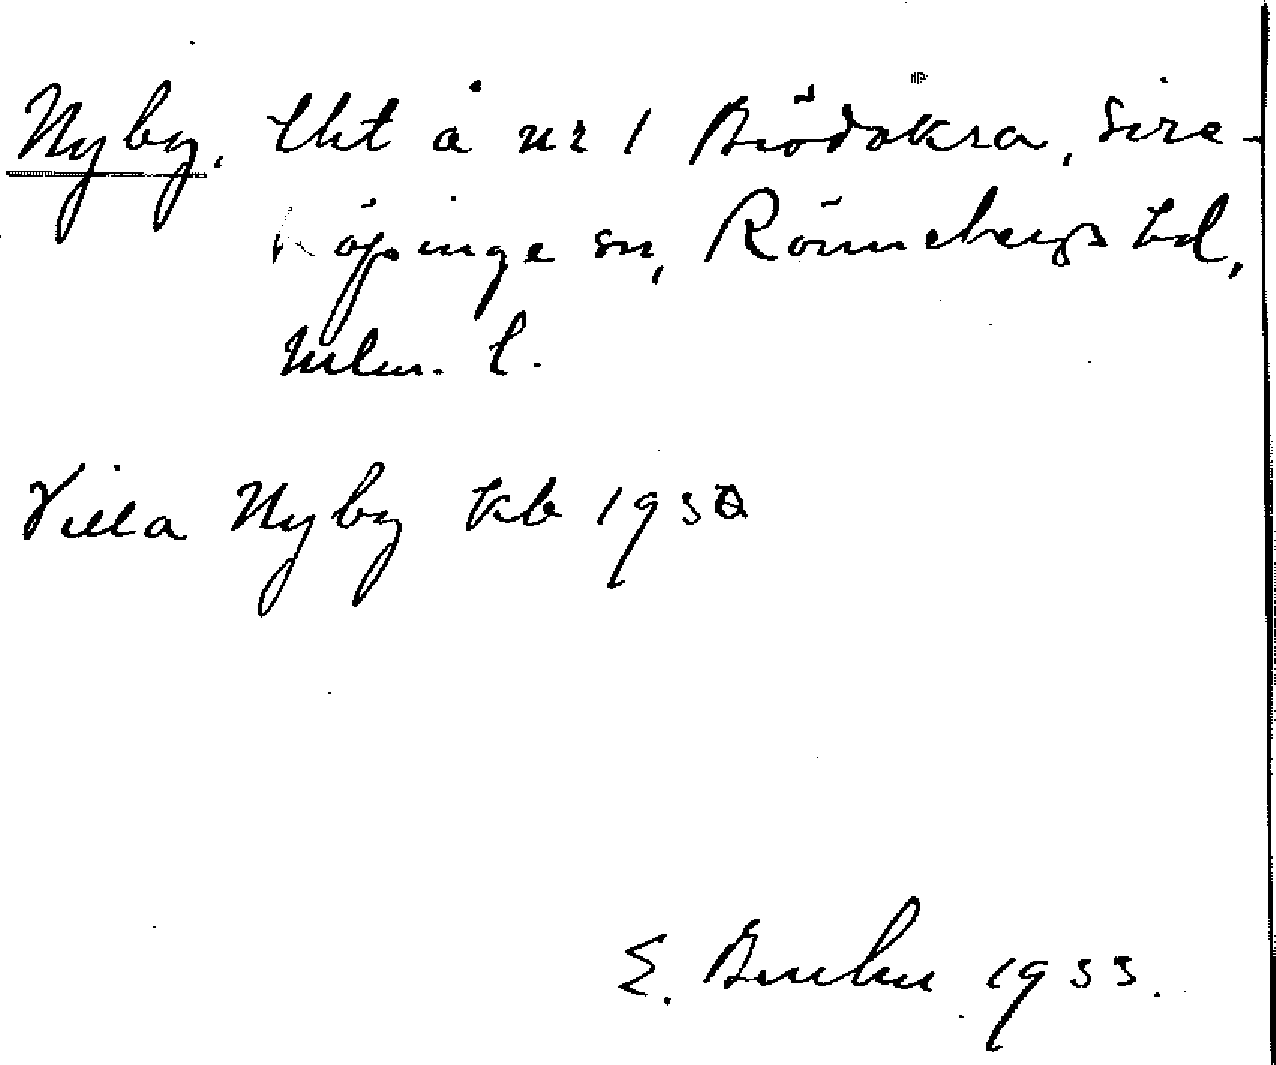 Nyby, lht å nr 1 Brödåkra, Sire-
köpinge sn, Rönnebergs hd,
Mlm. l.
Villa Nyby kb 1930
E. 1933.